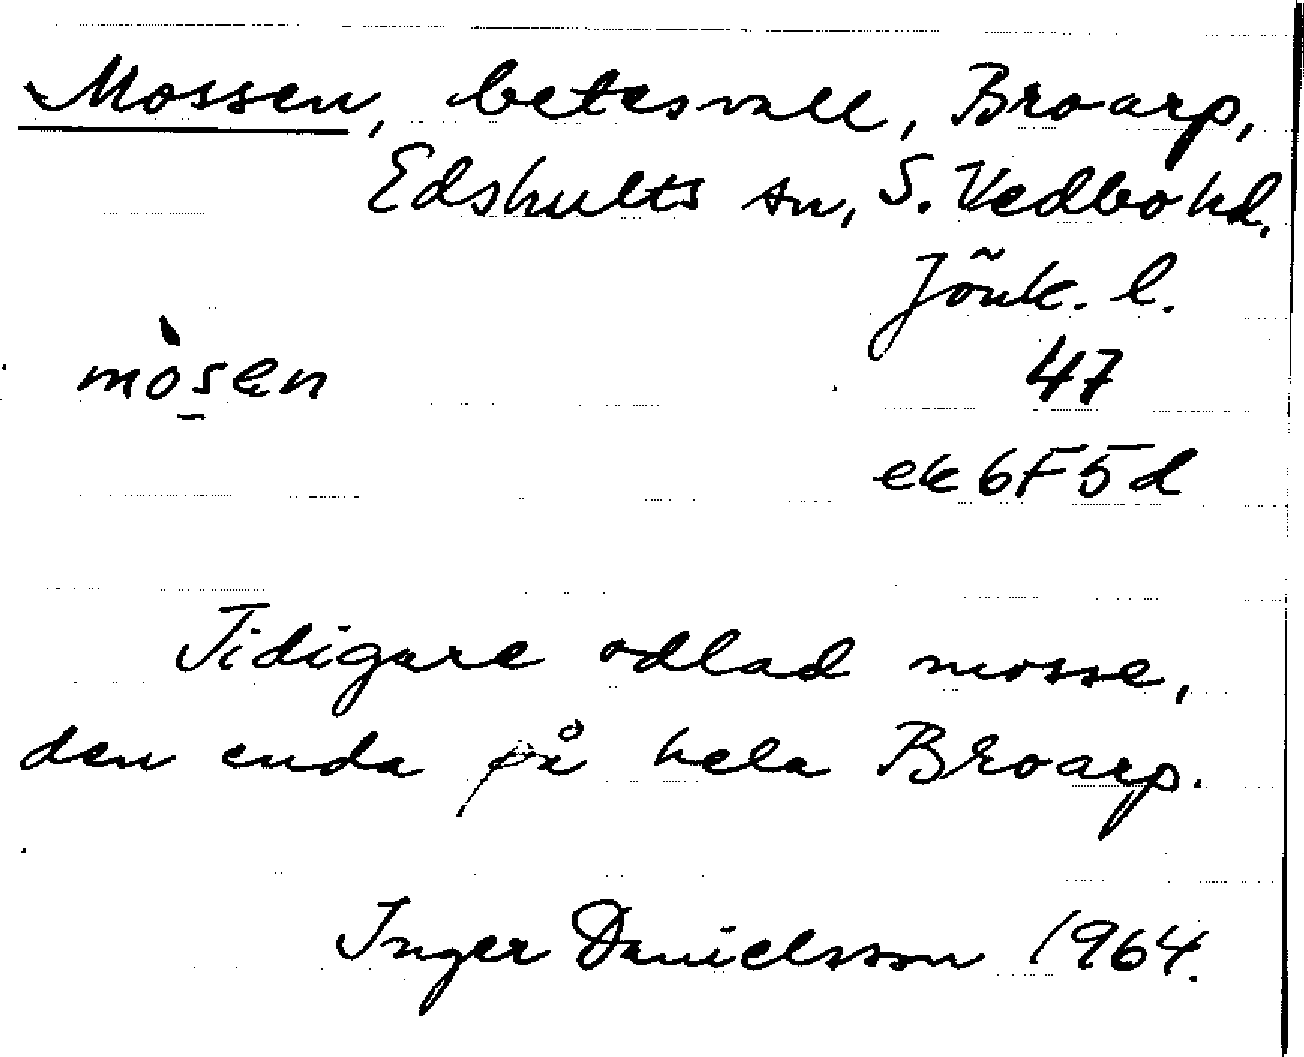 Mossen, betesvall, Broarp,
Edshults sn, S. Vedbo hd.
Jönk. l.
mòs̲en
47
ek 6F5d
Tidigare odlad mosse,
den enda på hela Broarp.
Inger Danielsson 1964.